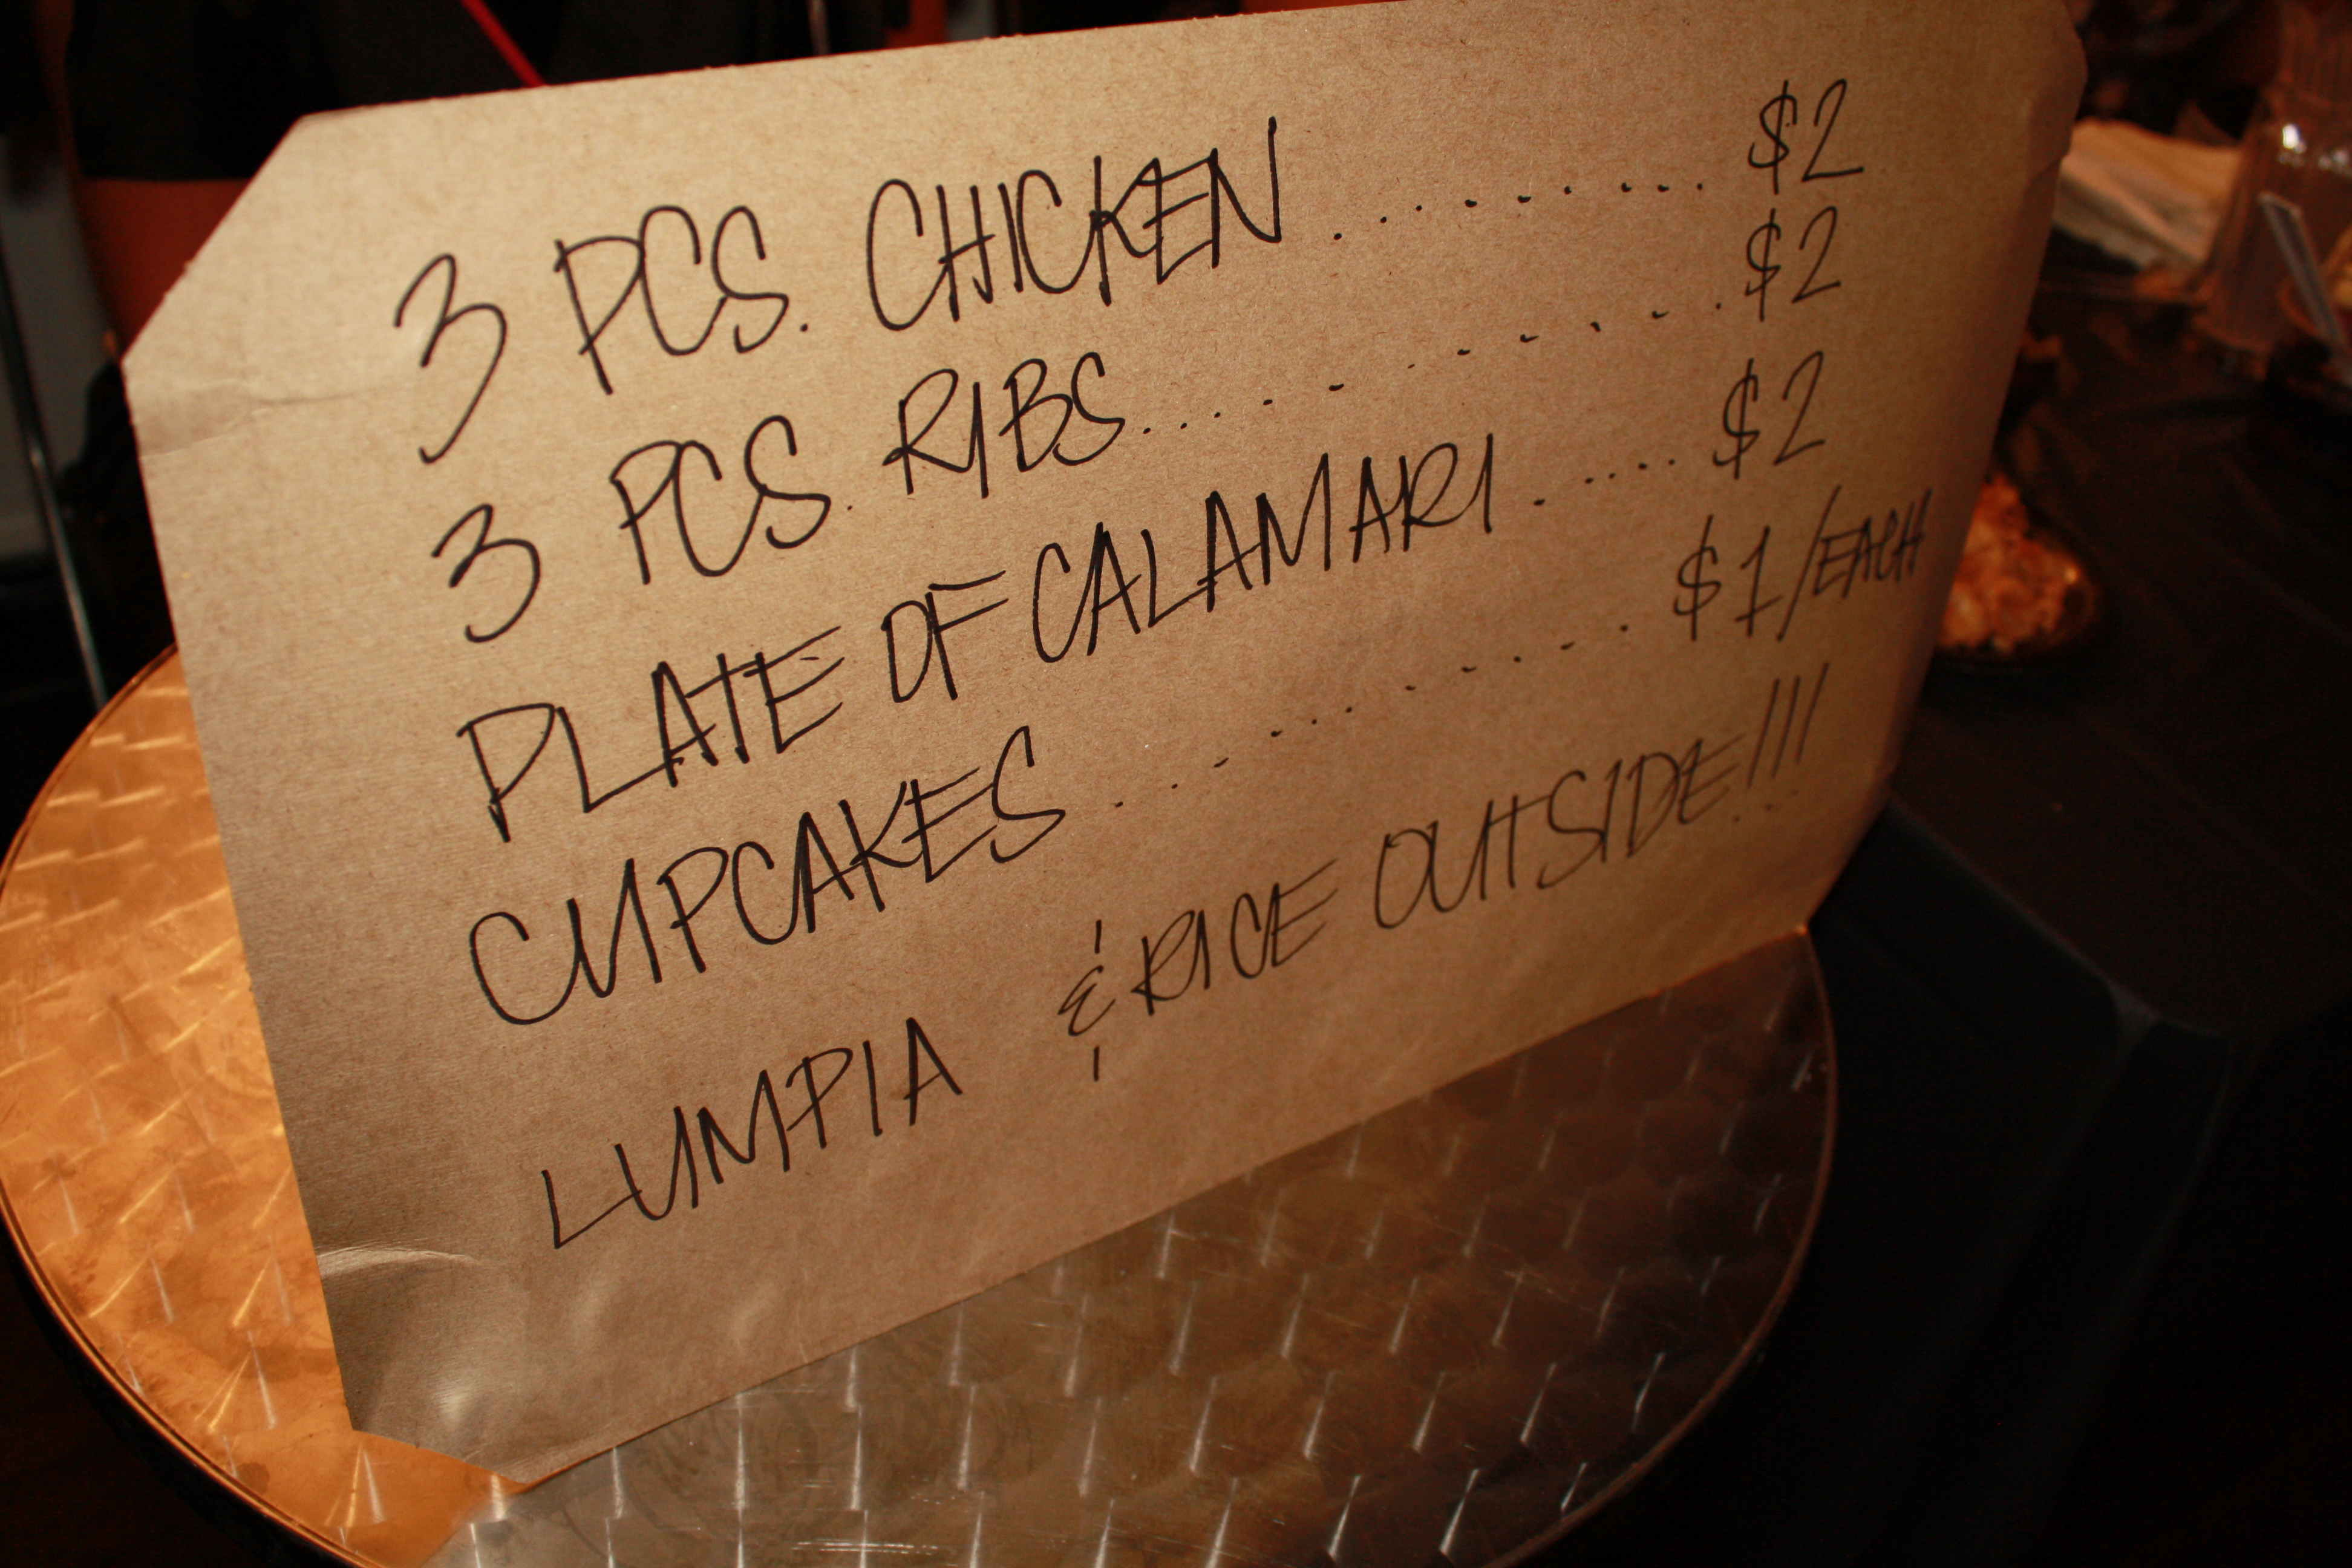 3 PCS. CHICKEN .......... $2
3 PCS. RIBS............ $2
PLATE OF CALAMARI ..... $2
CUPCAKES ........... $1/EACH
LUMPIA & RICE OUTSIDE!!!